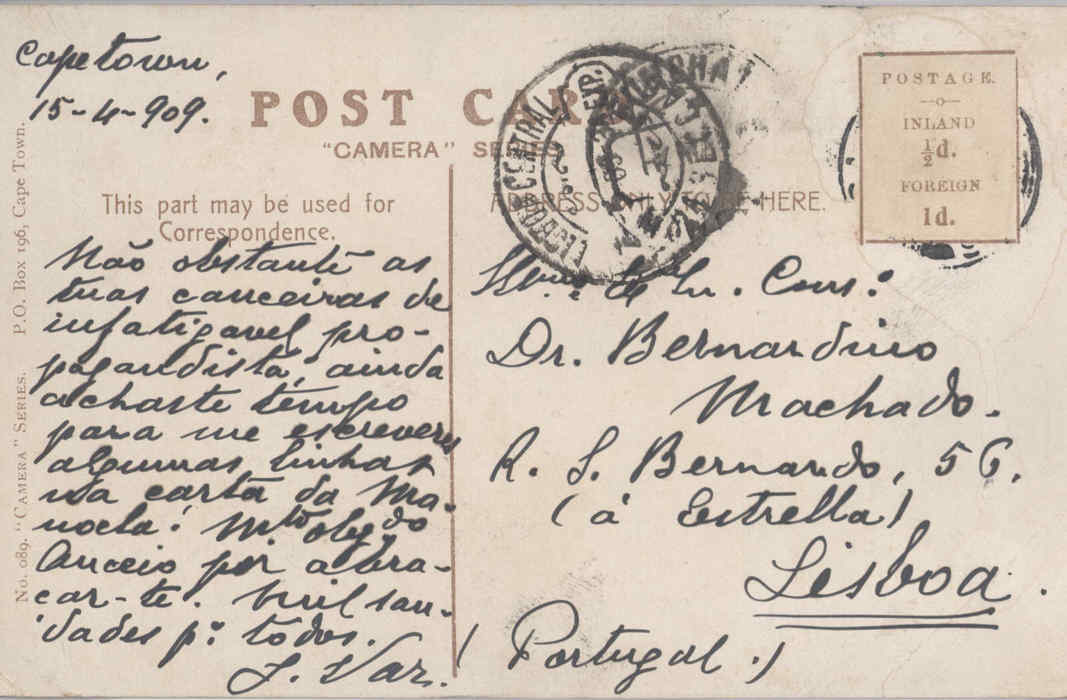 Capetown,
15-4-909.
POST CARD
"CAMERA" SERIES
This part may be used for
Correspondence.
ADDRESS ONLY TO BE HERE.
POSTAGE.
INLAND
½d.
FOREIGN
1d.
CENTRAL
No. 089. "CAMERA" SERIES. P.O. Box 196, Cape Town.
Não obstante as
tuas canceiras de
infatigavel pro-
pagandista, ainda
achaste tempo
para me escreveres
algumas linhas
na carta da Ma-
nocla! M.to obg.do
Anceio por abra-
çar-te. Mil sau-
dades p.a todos.
J. Vaz.
Ill.mo e Ex. Cons:
Dr. Bernardino
Machado.
R. S. Bernardo, 56.
(á Estrella)
Lisboa.
(Portugal.)